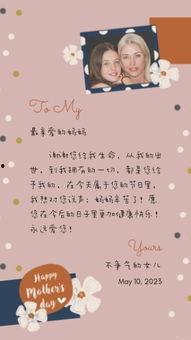 To My
最亲爱的妈妈
谢谢您给我生命，从我的出
世，到我拥有的一切，都是您给
予我的，在今天属于您的节日里，
我想对您说声：妈妈辛苦了！愿
您在今后的日子里更加健康快乐！
永远爱您！
Yours
不争气的女儿
May 10, 2023
Happy
Mother's
day